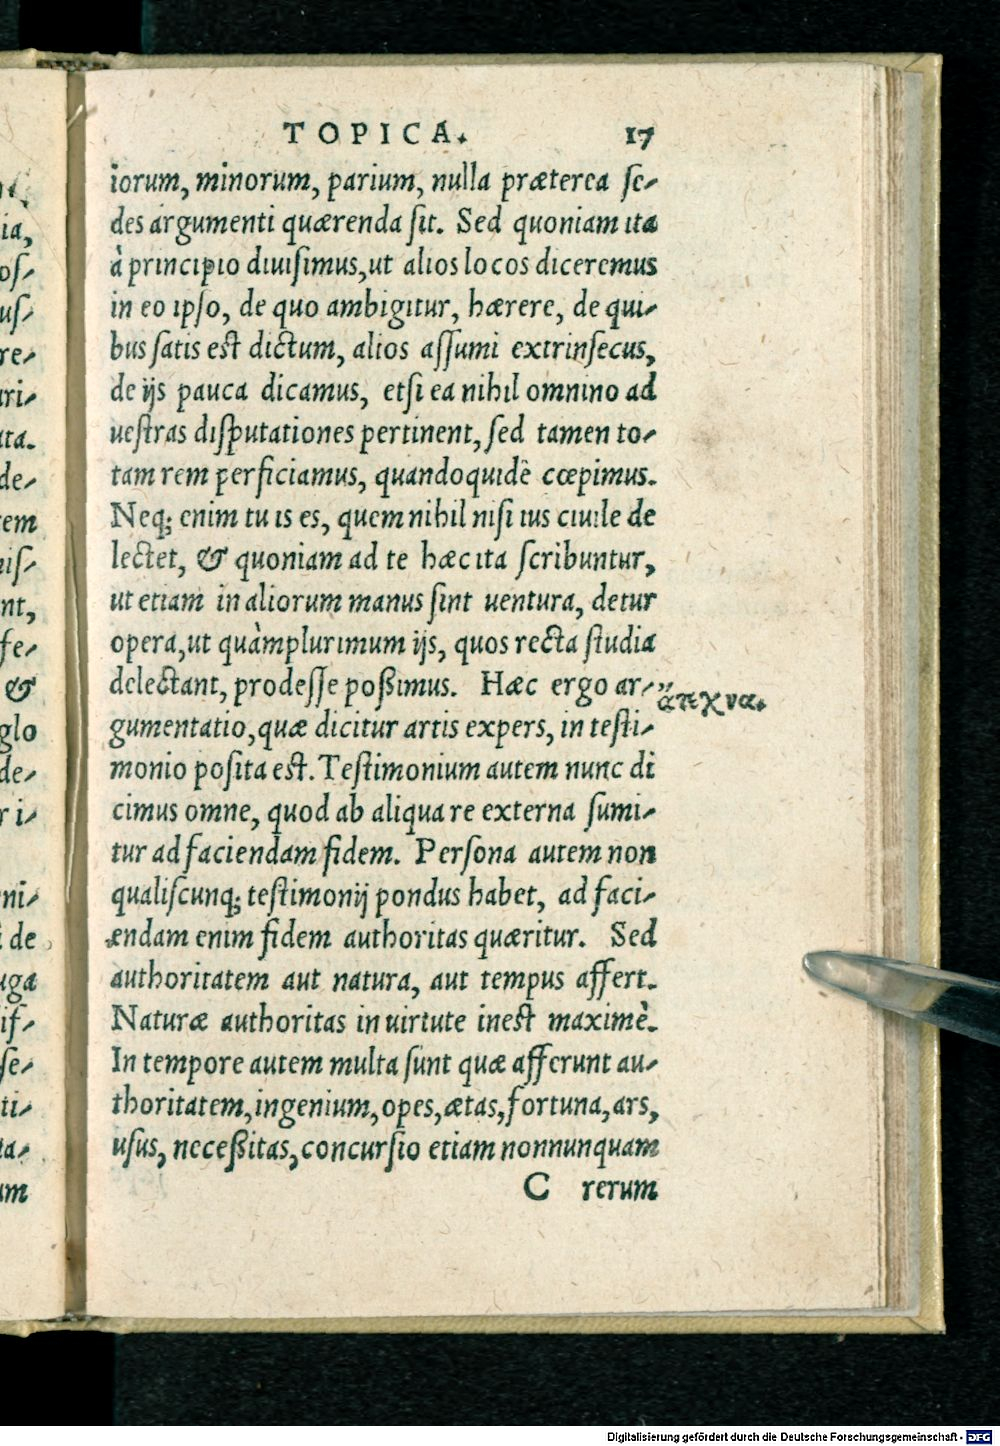 TOPICA. 17
iorum, minorum, parium, nulla præterea ſe-
des argumenti quærenda ſit. Sed quoniam ita
à principio diuiſimus, ut alios locos diceremus
in eo ipſo, de quo ambigitur, hærere, de qui-
bus ſatis eſt dictum, alios aſſumi extrinſecus,
de ijs pauca dicamus, etſi ea nihil omnino ad
ueſtras diſputationes pertinent, ſed tamen to-
tam rem perficiamus, quandoquidẽ cœpimus.
Neq; enim tu is es, quem nihil niſi ius ciuile de
lectet, & quoniam ad te hæc ita ſcribuntur,
ut etiam in aliorum manus ſint uentura, detur
opera, ut quàmplurimum ijs, quos recta ſtudia
delectant, prodeſſe poßimus. Hæc ergo ar-
ἄτεχνα.
gumentatio, quæ dicitur artis expers, in teſti-
monio poſita eſt. Teſtimonium autem nunc di
cimus omne, quod ab aliqua re externa ſumi-
tur ad faciendam fidem. Perſona autem non
qualiſcunq; teſtimonij pondus habet, ad faci-
endam enim fidem authoritas quæritur. Sed
authoritatem aut natura, aut tempus affert.
Naturæ authoritas in uirtute ineſt maximè.
In tempore autem multa ſunt quæ afferunt au-
thoritatem, ingenium, opes, ætas, fortuna, ars,
uſus, neceßitas, concurſio etiam nonnunquam
C rerum
ia,
oſ-
uſ-
re-
uri-
ita.
de-
em
niſ-
nt,
fe-
&
glo
de-
r i-
ni-
de
uga
iſ-
ſe-
ti-
ta-
um
Digitalisierung gefördert durch die Deutsche Forschungsgemeinschaft - DFG